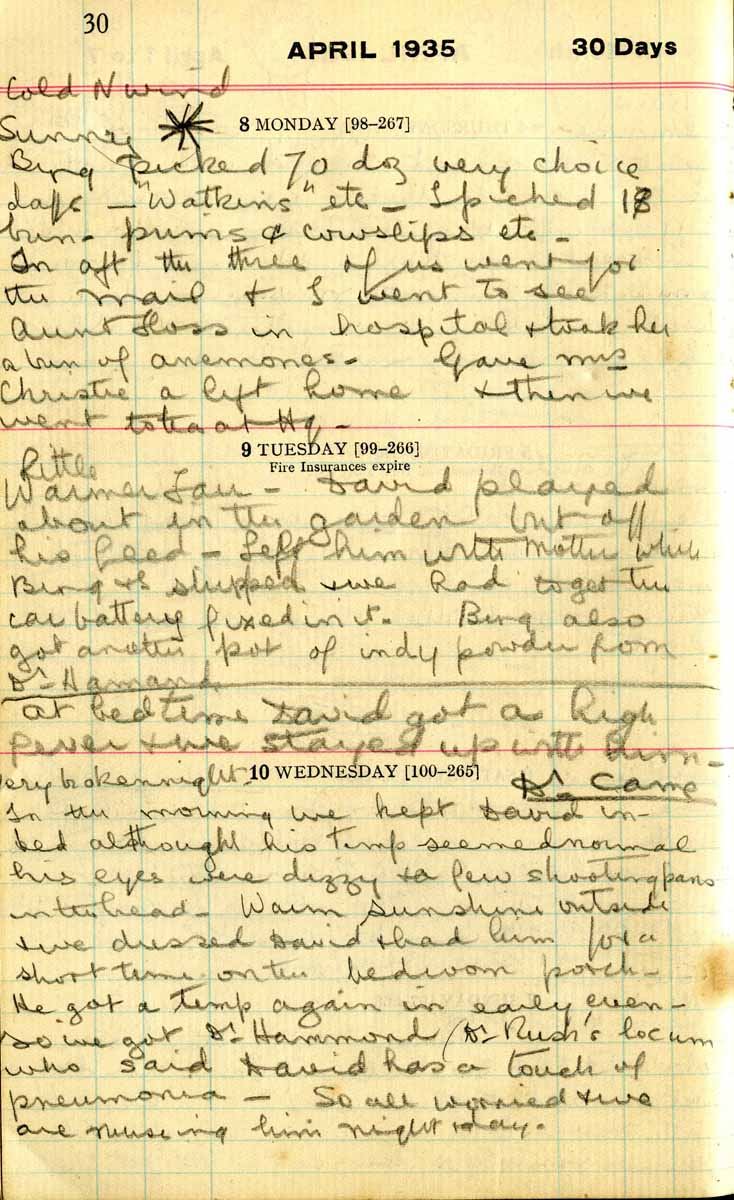 30
APRIL 1935 30 Days
Cold N wind
Sunny
8 MONDAY [98–267]
Bing picked 70 doz very choice
daffs – "Watkins" etc – I picked 18
bun – prims & cowslips etc –
In aft the three of us went for
the mail & I went to see
Aunt Floss in hospital & took her
a bun of anemones – Gave Mrs
Christie a lift home & then we
went to tea at Hq –
9 TUESDAY [99–266]
Fire Insurances expire
Little
Warmer Fair – David played
about in the garden but off
his feed – Left him with Mother while
Bing & I shipped & we had to get the
car battery fixed in it. Bing also
got another pot of indy powder from
Dr. Hamand.
At bedtime David got a high
fever & we stayed up with him –
ery broken night –
10 WEDNESDAY [100–265]
Dr. came
In the morning we kept David in
bed althought his temp seemed normal
his eyes were dizzy & a few shooting pans
in the head – Warm sunshine outside
& we dressed David & had him for a
short time on the bedroom porch –
He got a temp again in early even –
So we got Dr. Hammond (Dr. Rush's locum
who said David has a touch of
pneumonia – So all worried & we
are nursing him night & day.